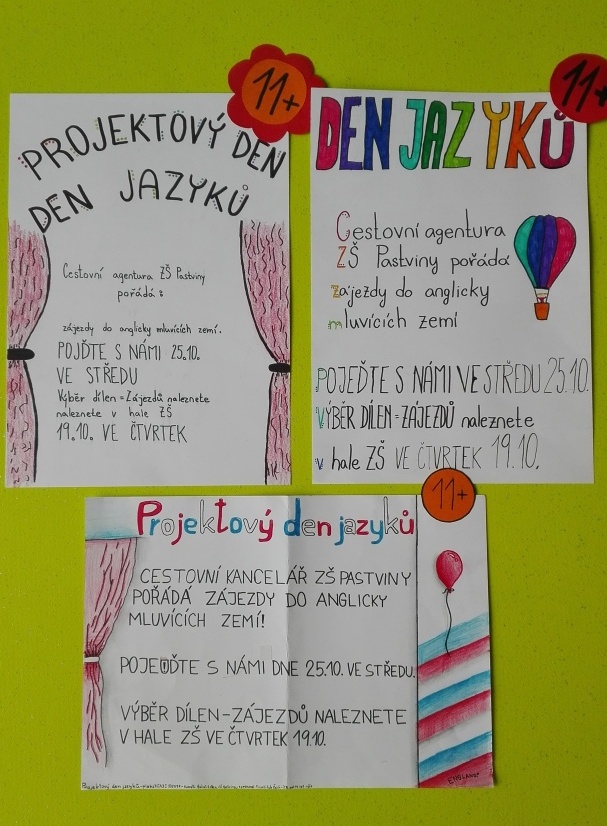 11+
PROJEKTOVÝ DEN
DEN JAZYKŮ
Cestovní agentura ZŠ Pastviny
pořádá :
zájezdy do anglicky mluvících zemí.
POJĎTE S NÁMI 25.10.
VE STŘEDU
Výběr dílen = Zájezdů naleznete
naleznete v hale ZŠ
19.10. VE ČTVRTEK
11+
DEN JAZYKŮ
Cestovní agentura
ZŠ Pastviny pořádá
zájezdy do anglicky
mluvících zemí
POJEĎTE S NÁMI VE STŘEDU 25.10.
VÝBĚR DÍLEN = ZÁJEZDŮ naleznete
v hale ZŠ VE ČTVRTEK 19.10.
11+
Projektový den jazyků
CESTOVNÍ KANCELÁŘ ZŠ PASTVINY
POŘÁDÁ ZÁJEZDY DO ANGLICKY
MLUVÍCÍCH ZEMÍ!
POJEĎTE S NÁMI DNE 25.10. VE STŘEDU.
VÝBĚR DÍLEN-ZÁJEZDŮ NALEZNETE
V HALE ZŠ VE ČTVRTEK 19.10.
Projektový den jazyků